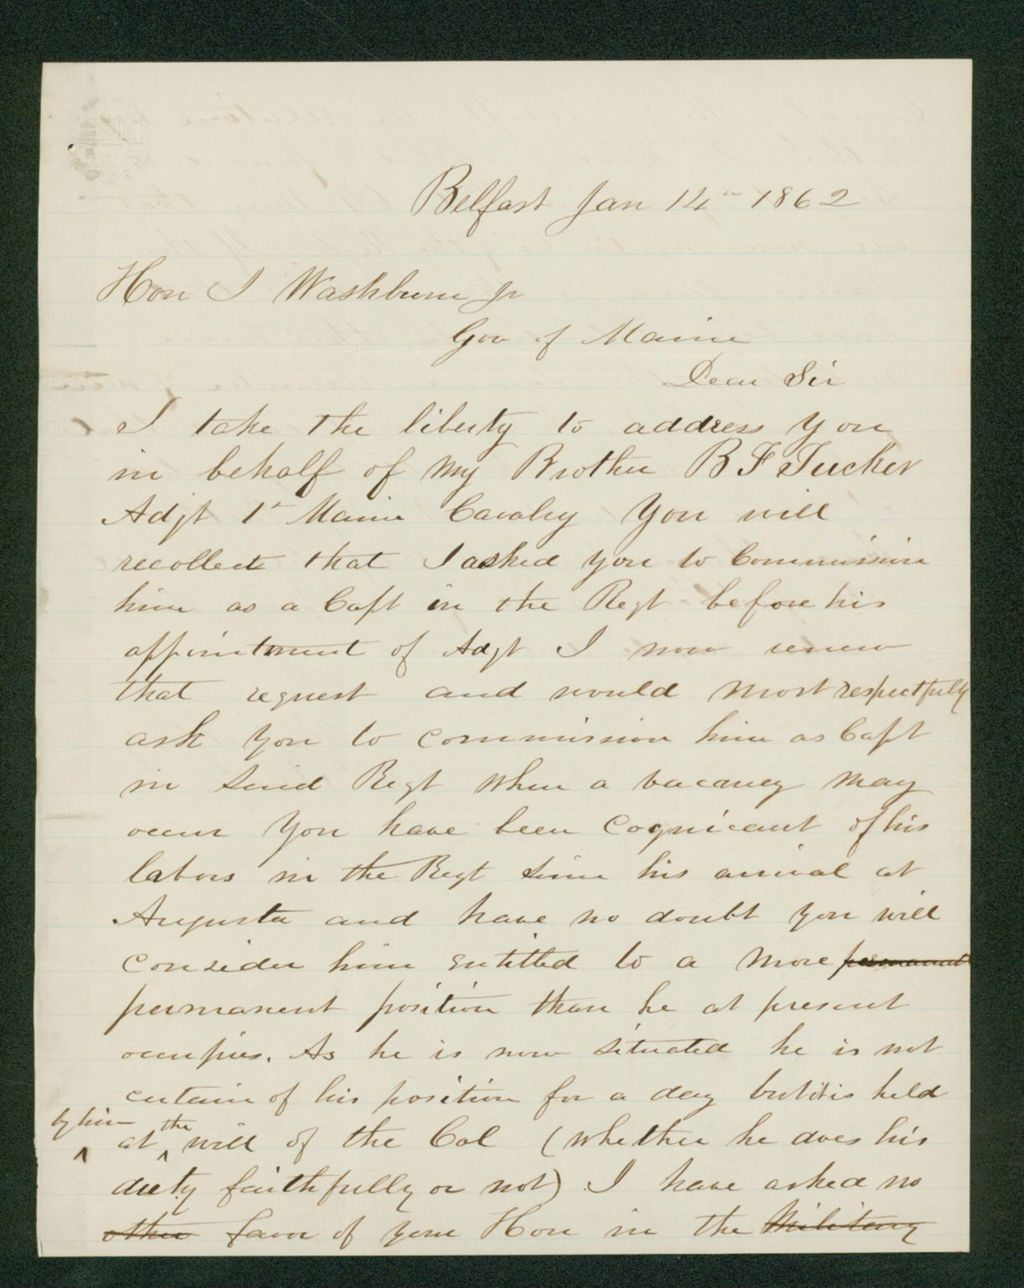 Belfast Jan 14th 1862
Hon I Washburn Jr
Gov of Maine
Dear Sir
I take the liberty to address you
in behalf of my Brother B F Tucker
Adjt 1st Maine Cavalry You will
recollect that I asked you to Commission
him as a Capt in the Regt before his
appointment of Adjt I now renew
that request and would most respectfully
ask you to commission him as Capt
in said Regt when a vacancy may
occur You have been Cognizant of his
labors in the Regt since his arrival at
Augusta and have no doubt you will
consider him entitled to a more permanent
permanent position than he at present
occupies. As he is now situated he is not
certain of his position for a day but it is held
by him at the will of the Col (whether he does his
duty faithfully or not) I have asked no
other favor of your Hon in the Military